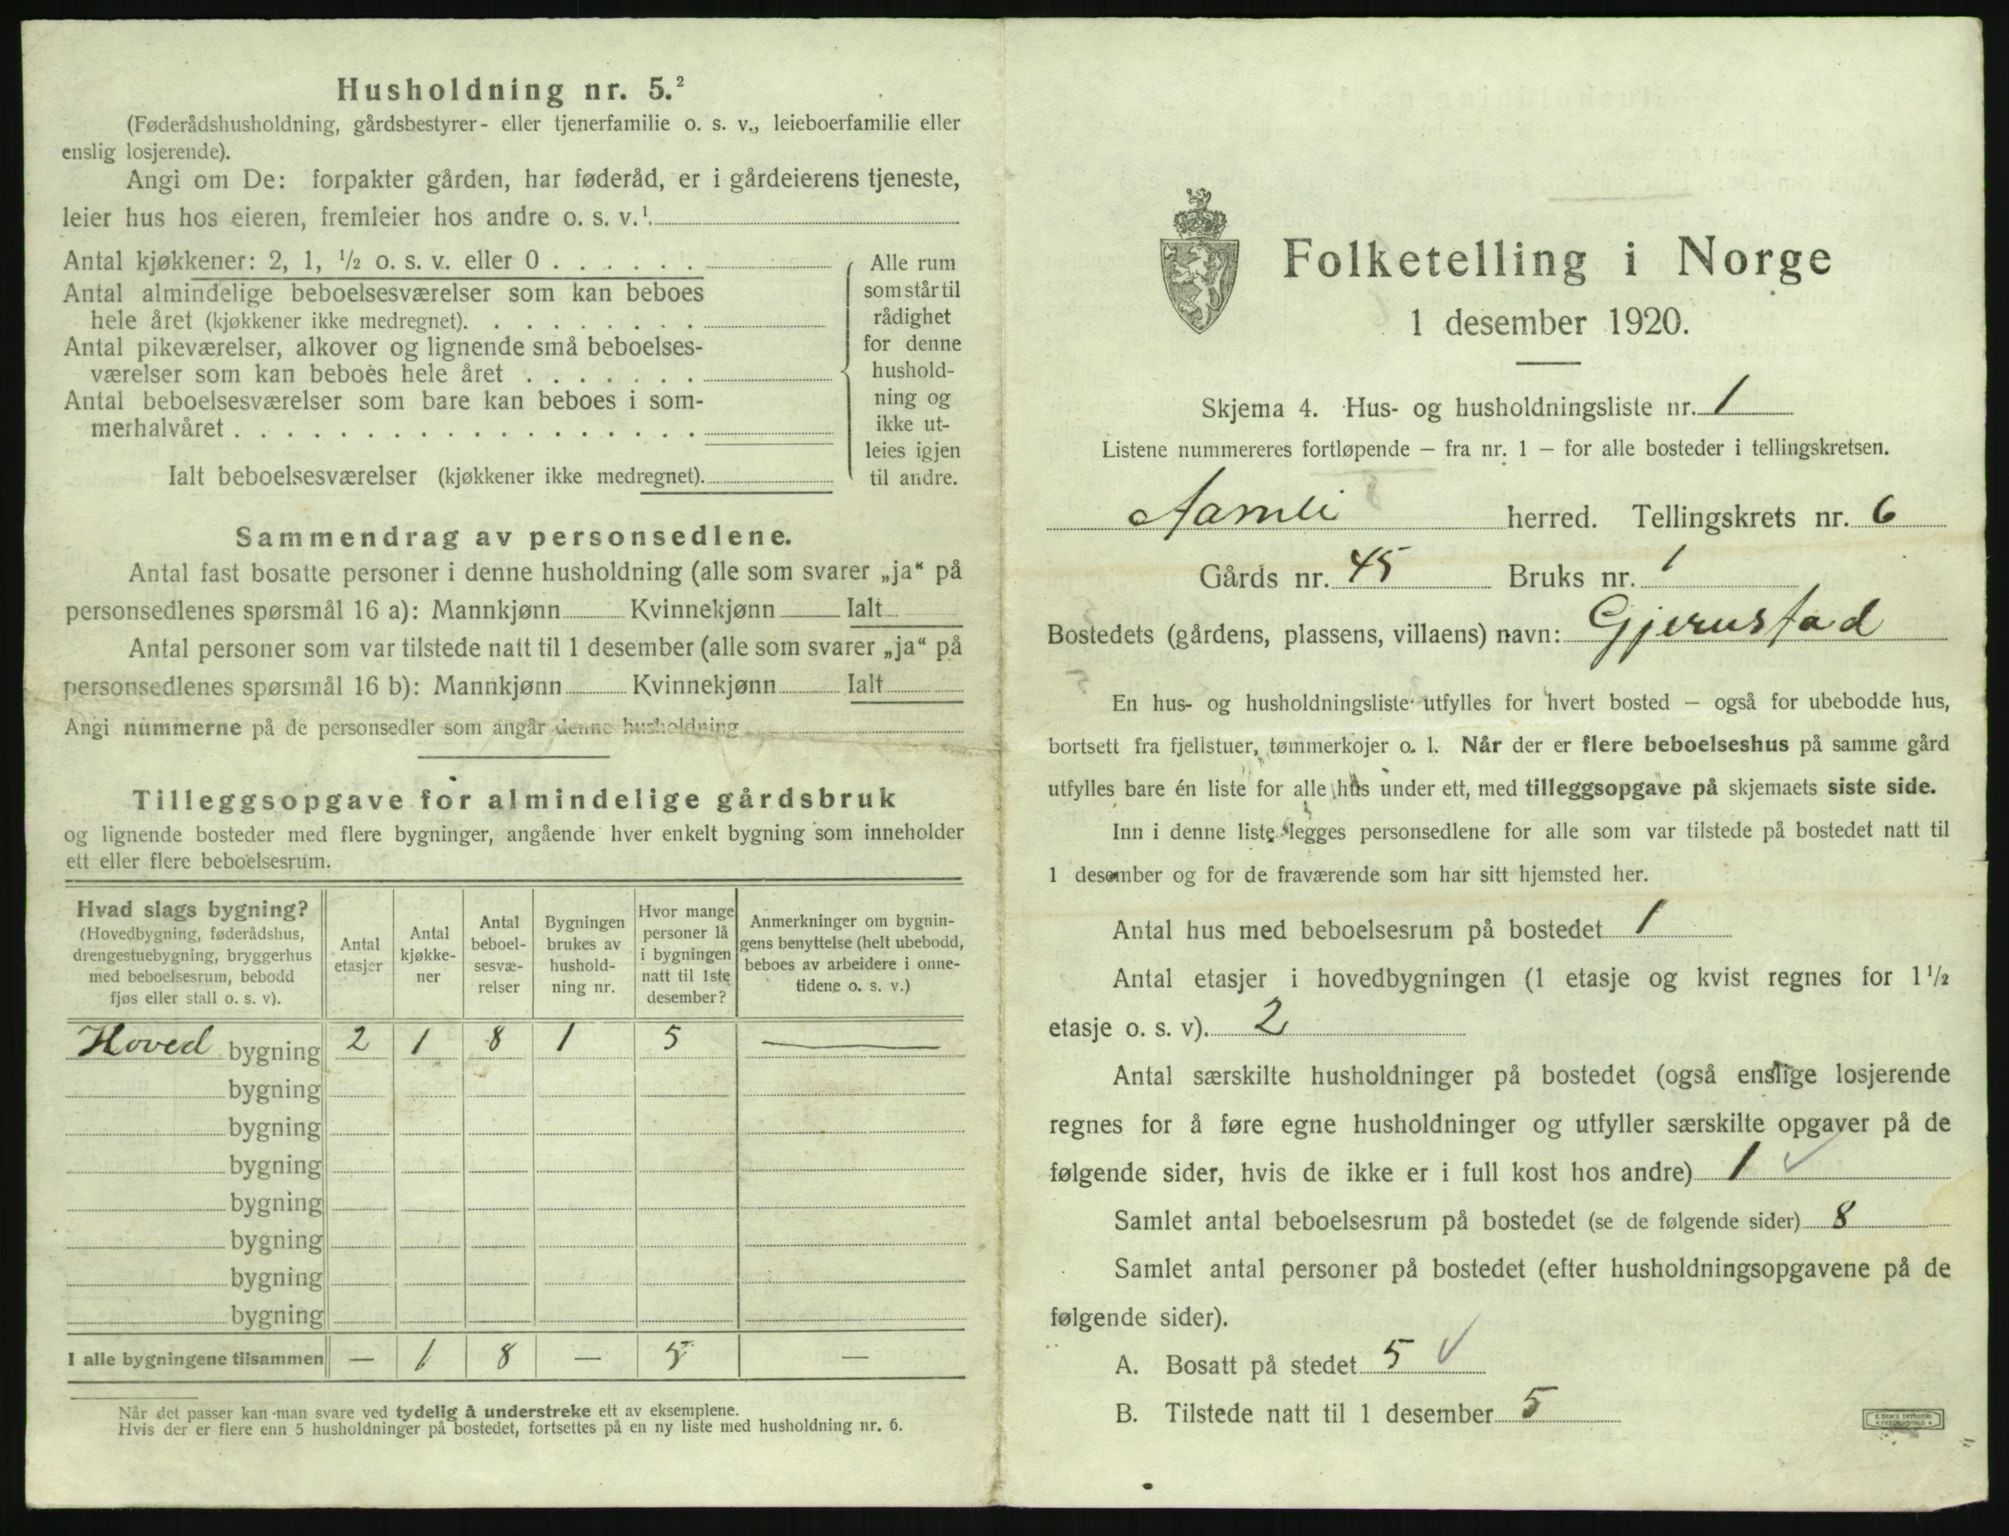 Husholdning nr. 5.²
(Føderådshusholdning, gårdsbestyrer- eller tjenerfamilie o. s. v., leieboerfamilie eller
enslig losjerende).
Angi om De: forpakter gården, har føderåd, er i gårdeierens tjeneste,
leier hus hos eieren, fremleier hos andre o. s. v.¹
Antal kjøkkener: 2, 1, ½ o. s. v. eller 0 . . . . . .
Antal almindelige beboelsesværelser som kan beboes
hele året (kjøkkener ikke medregnet). . . . . . . . . .
Antal pikeværelser, alkover og lignende små beboelses-
værelser som kan beboes hele året . . . . . . .
Antal beboelsesværelser som bare kan beboes i som-
merhalvåret . . . . . . . . . . . . . . . . . .
Ialt beboelsesværelser (kjøkkener ikke medregnet).
Alle rum
som står til
rådighet
for denne
hushold-
ning og
ikke ut-
leies igjen
til andre.
Sammendrag av personsedlene.
Antal fast bosatte personer i denne husholdning (alle som svarer „ja“ på
personsedlenes spørsmål 16 a): Mannkjønn Kvinnekjønn Ialt
Antal personer som var tilstede natt til 1 desember (alle som svarer „ja“ på
personsedlenes spørsmål 16 b): Mannkjønn Kvinnekjønn Ialt
Angi nummerne på de personsedler som angår denne husholdning
Tilleggsopgave for almindelige gårdsbruk
og lignende bosteder med flere bygninger, angående hver enkelt bygning som inneholder
ett eller flere beboelsesrum.
Hvad slags bygning?
(Hovedbygning, føderådshus,
drengestuebygning, bryggerhus
med beboelsesrum, bebodd
fjøs eller stall o. s. v).
Antal
etasjer
Antal
kjøkke-
ner
Antal
beboel-
sesvæ-
relser
Bygningen
brukes av
hushold-
ning nr.
Hvor mange
personer lå
i bygningen
natt til 1ste
desember?
Anmerkninger om bygnin-
gens benyttelse (helt ubebodd,
beboes av arbeidere i onne-
tidene o. s. v.)
Hoved bygning 2 1 8 1 5 —
bygning
bygning
bygning
bygning
bygning
bygning
bygning
I alle bygningene tilsammen — 1 8 — 5 —
Når det passer kan man svare ved tydelig å understreke ett av eksemplene.
Hvis der er flere enn 5 husholdninger på bostedet, fortsettes på en ny liste med husholdning nr. 6.
Folketelling i Norge
1 desember 1920.
Skjema 4. Hus- og husholdningsliste nr. 1
Listene nummereres fortløpende – fra nr. 1 – for alle bosteder i tellingskretsen.
Aamli herred. Tellingskrets nr. 6
Gårds nr. 45 Bruks nr. 1
Bostedets (gårdens, plassens, villaens) navn: Gjerustad
En hus- og husholdningsliste utfylles for hvert bosted – også for ubebodde hus,
bortsett fra fjellstuer, tømmerkojer o. l. Når der er flere beboelseshus på samme gård
utfylles bare én liste for alle hus under ett, med tilleggsopgave på skjemaets siste side.
Inn i denne liste legges personsedlene for alle som var tilstede på bostedet natt til
1 desember og for de fraværende som har sitt hjemsted her.
Antal hus med beboelsesrum på bostedet 1
Antal etasjer i hovedbygningen (1 etasje og kvist regnes for 1 ½
etasje o. s. v). 2
Antal særskilte husholdninger på bostedet (også enslige losjerende
regnes for å føre egne husholdninger og utfyller særskilte opgaver på de
følgende sider, hvis de ikke er i full kost hos andre) 1 ✓
Samlet antal beboelsesrum på bostedet (se de følgende sider) 8
Samlet antal personer på bostedet (efter husholdningsopgavene på de
følgende sider).
A. Bosatt på stedet 5 ✓
B. Tilstede natt til 1 desember 5